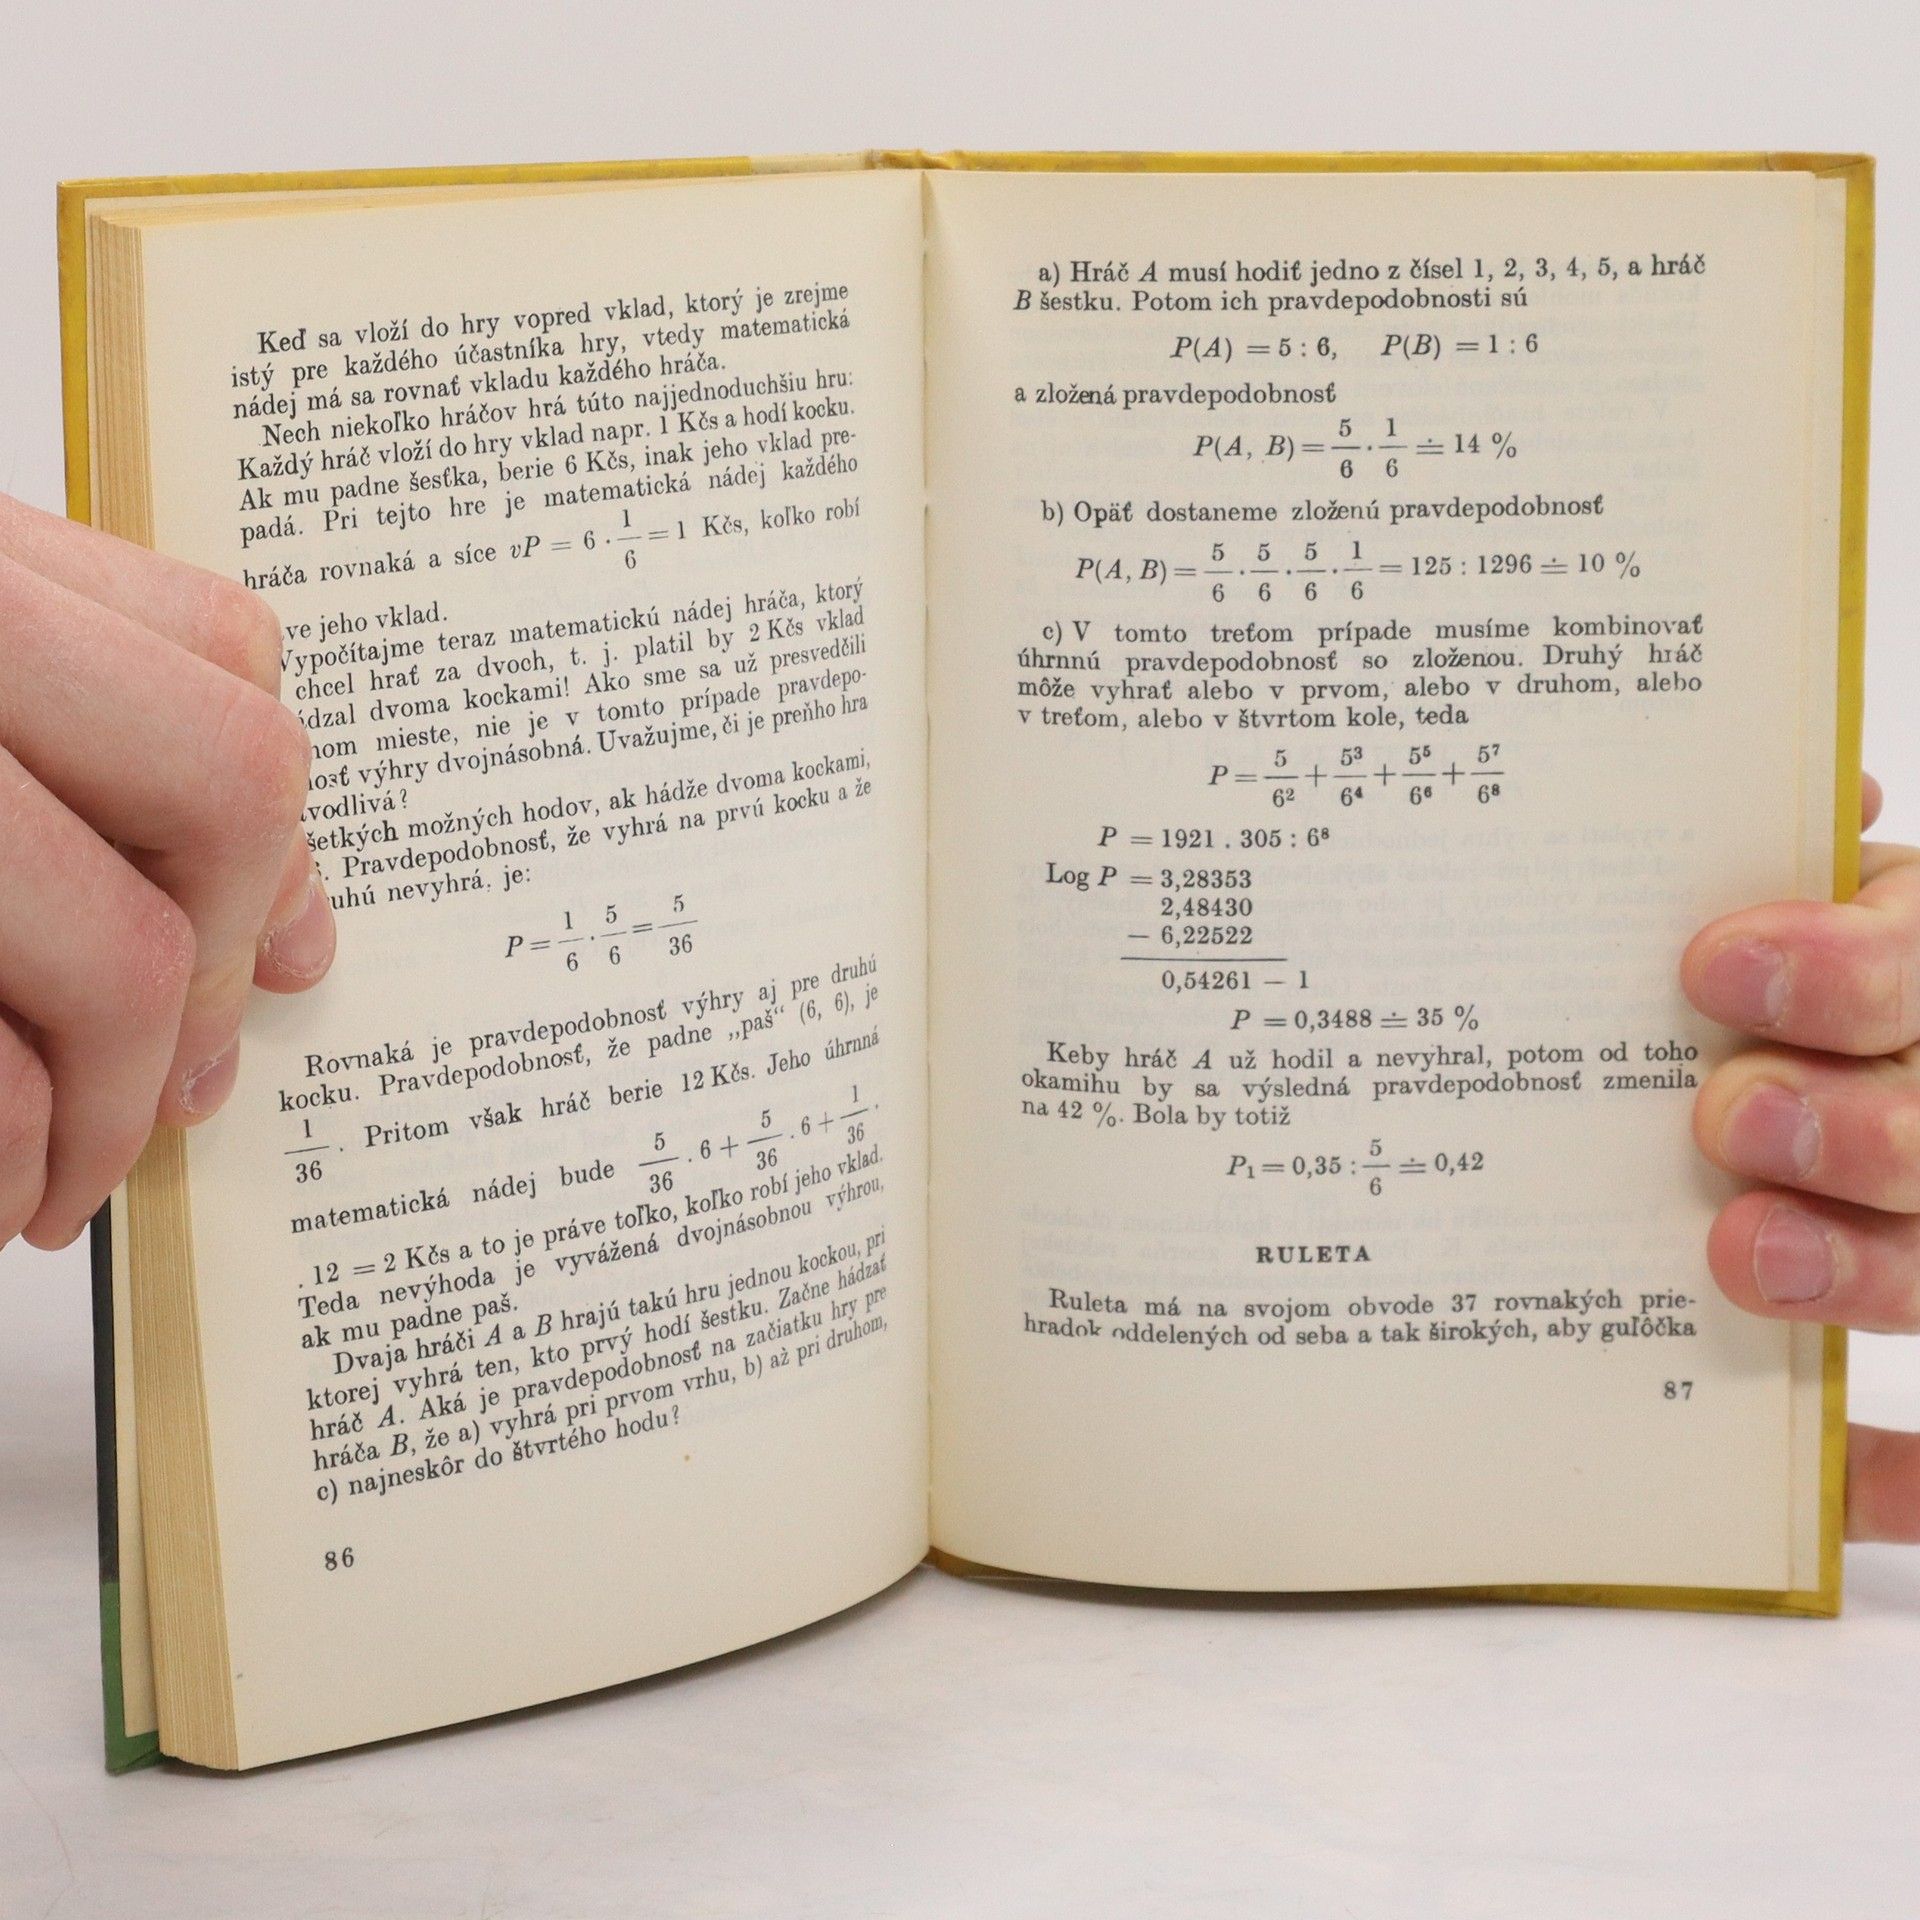 Keď sa vloží do hry vopred vklad, ktorý je zrejme
istý pre každého účastníka hry, vtedy matematická
nádej má sa rovnať vkladu každého hráča.
Nech niekoľko hráčov hrá túto najjednoduchšiu hru:
Každý hráč vloží do hry vklad napr. 1 Kčs a hodí kocku.
Ak mu padne šesťka, berie 6 Kčs, inak jeho vklad pre-
padá. Pri tejto hre je matematická nádej každého
hráča rovnaká a síce vP = 6 · 1/6 = 1 Kčs, koľko robí
jeho vklad.
Vypočítajme teraz matematickú nádej hráča, ktorý
chcel hrať za dvoch, t. j. platil by 2 Kčs vklad
dvoma kockami! Ako sme sa už presvedčili
mieste, nie je v tomto prípade pravdepo-
výhry dvojnásobná. Uvažujme, či je preňho hra

možných hodov, ak hádže dvoma kockami,
Pravdepodobnosť, že vyhrá na prvú kocku a že
nevyhrá, je:
P = 1/6 · 5/6 = 5/36
Rovnaká je pravdepodobnosť výhry aj pre druhú
kocku. Pravdepodobnosť, že padne „paš“ (6, 6), je
1/36 . Pritom však hráč berie 12 Kčs. Jeho úhrnná
matematická nádej bude 5/36 . 6 + 5/36 . 6 + 1/36 .
. 12 = 2 Kčs a to je práve toľko, koľko robí jeho vklad.
Teda nevýhoda je vyvážená dvojnásobnou výhrou,
ak mu padne paš.
Dvaja hráči A a B hrajú takú hru jednou kockou, pri
ktorej vyhrá ten, kto prvý hodí šestku. Začne hádzať
hráč A. Aká je pravdepodobnosť na začiatku hry pre
hráča B, že a) vyhrá pri prvom vrhu, b) až pri druhom,
c) najneskôr do štvrtého hodu?
86
a) Hráč A musí hodiť jedno z čísel 1, 2, 3, 4, 5, a hráč
B šestku. Potom ich pravdepodobnosti sú
P(A) = 5 : 6, P(B) = 1 : 6
a zložená pravdepodobnosť
P(A, B) = 5/6 · 1/6 ≐ 14 %
b) Opäť dostaneme zloženú pravdepodobnosť
P(A, B) = 5/6 · 5/6 · 5/6 · 1/6 = 125 : 1296 ≐ 10 %
c) V tomto treťom prípade musíme kombinovať
úhrnnú pravdepodobnosť so zloženou. Druhý hráč
môže vyhrať alebo v prvom, alebo v druhom, alebo
v treťom, alebo v štvrtom kole, teda
P = 5/6² + 5³/6⁴ + 5⁵/6⁶ + 5⁷/6⁸
P = 1921 . 305 : 6⁸
Log P = 3,28353
2,48430
— 6,22522
0,54261 — 1
P = 0,3488 ≐ 35 %
Keby hráč A už hodil a nevyhral, potom od toho
okamihu by sa výsledná pravdepodobnosť zmenila
na 42 %. Bola by totiž
P₁ = 0,35 : 5/6 ≐ 0,42
RULETA
Ruleta má na svojom obvode 37 rovnakých prie-
hradok oddelených od seba a tak širokých, aby guľôčka
87